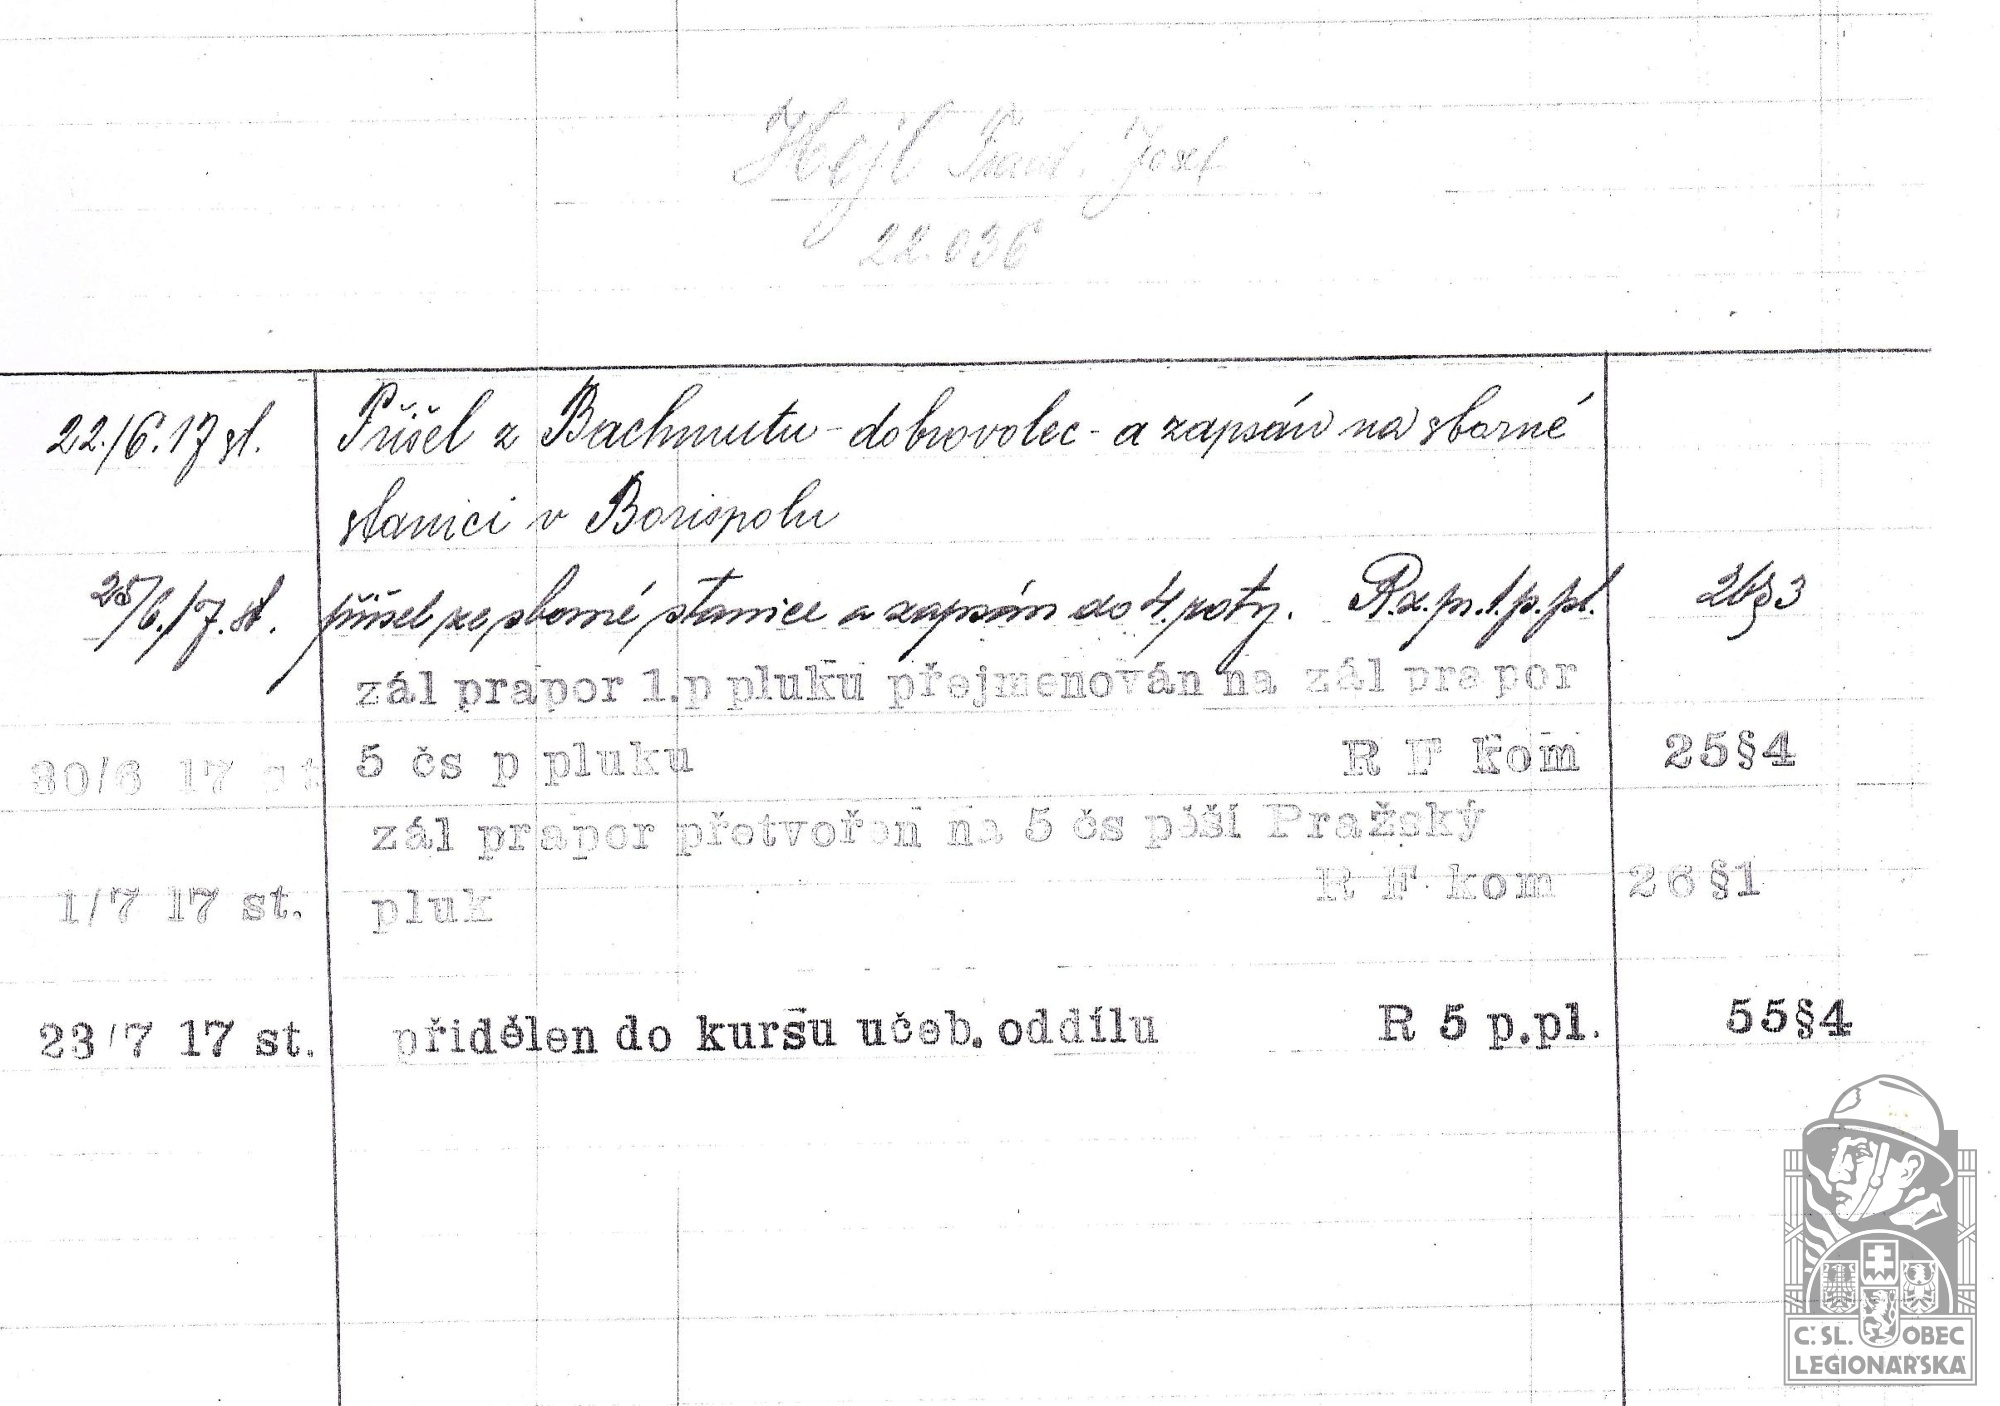 Hejl Frant. Josef
22.036
22./6.17 st. Přišel z Bachmutu - dobrovolec - a zapsán na sborné
stanici v Borispolu
25/6./17. st. přišel ze sborné stanice a zapsán do 4. roty. R.z.pr.1.p.pl. 26§3
zál prapor 1.p pluku přejmenován na zál prapor
30/6 17 st. 5 čs p pluku R F kom 25§4
zál prapor přetvořen na 5 čs pěší Pražský
1/7 17 st. pluk R F kom 26§1
23/7 17 st. přidělen do kursu učeb. oddílu R 5 p.pl. 55§4
Č.SL. OBEC
LEGIONÁŘSKÁ